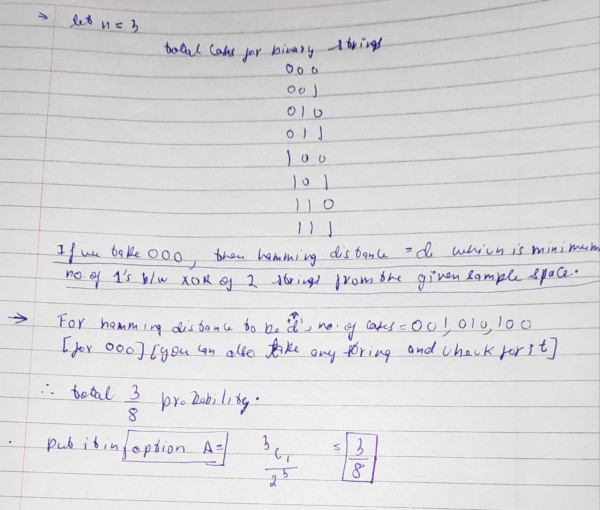 → let n = 3
total cases for binary strings
000
001
010
011
100
101
110
111
If we take 000, then hamming distance = d which is minimum
no. of 1's b/w XOR of 2 strings from the given sample space.
→ For hamming distance to be 'd', no. of cases = 001, 010, 100
[for 000] [you can also take any string and check for it]
∴ total 3/8 probability.
put it in option A = ³C₁/2³ = 3/8